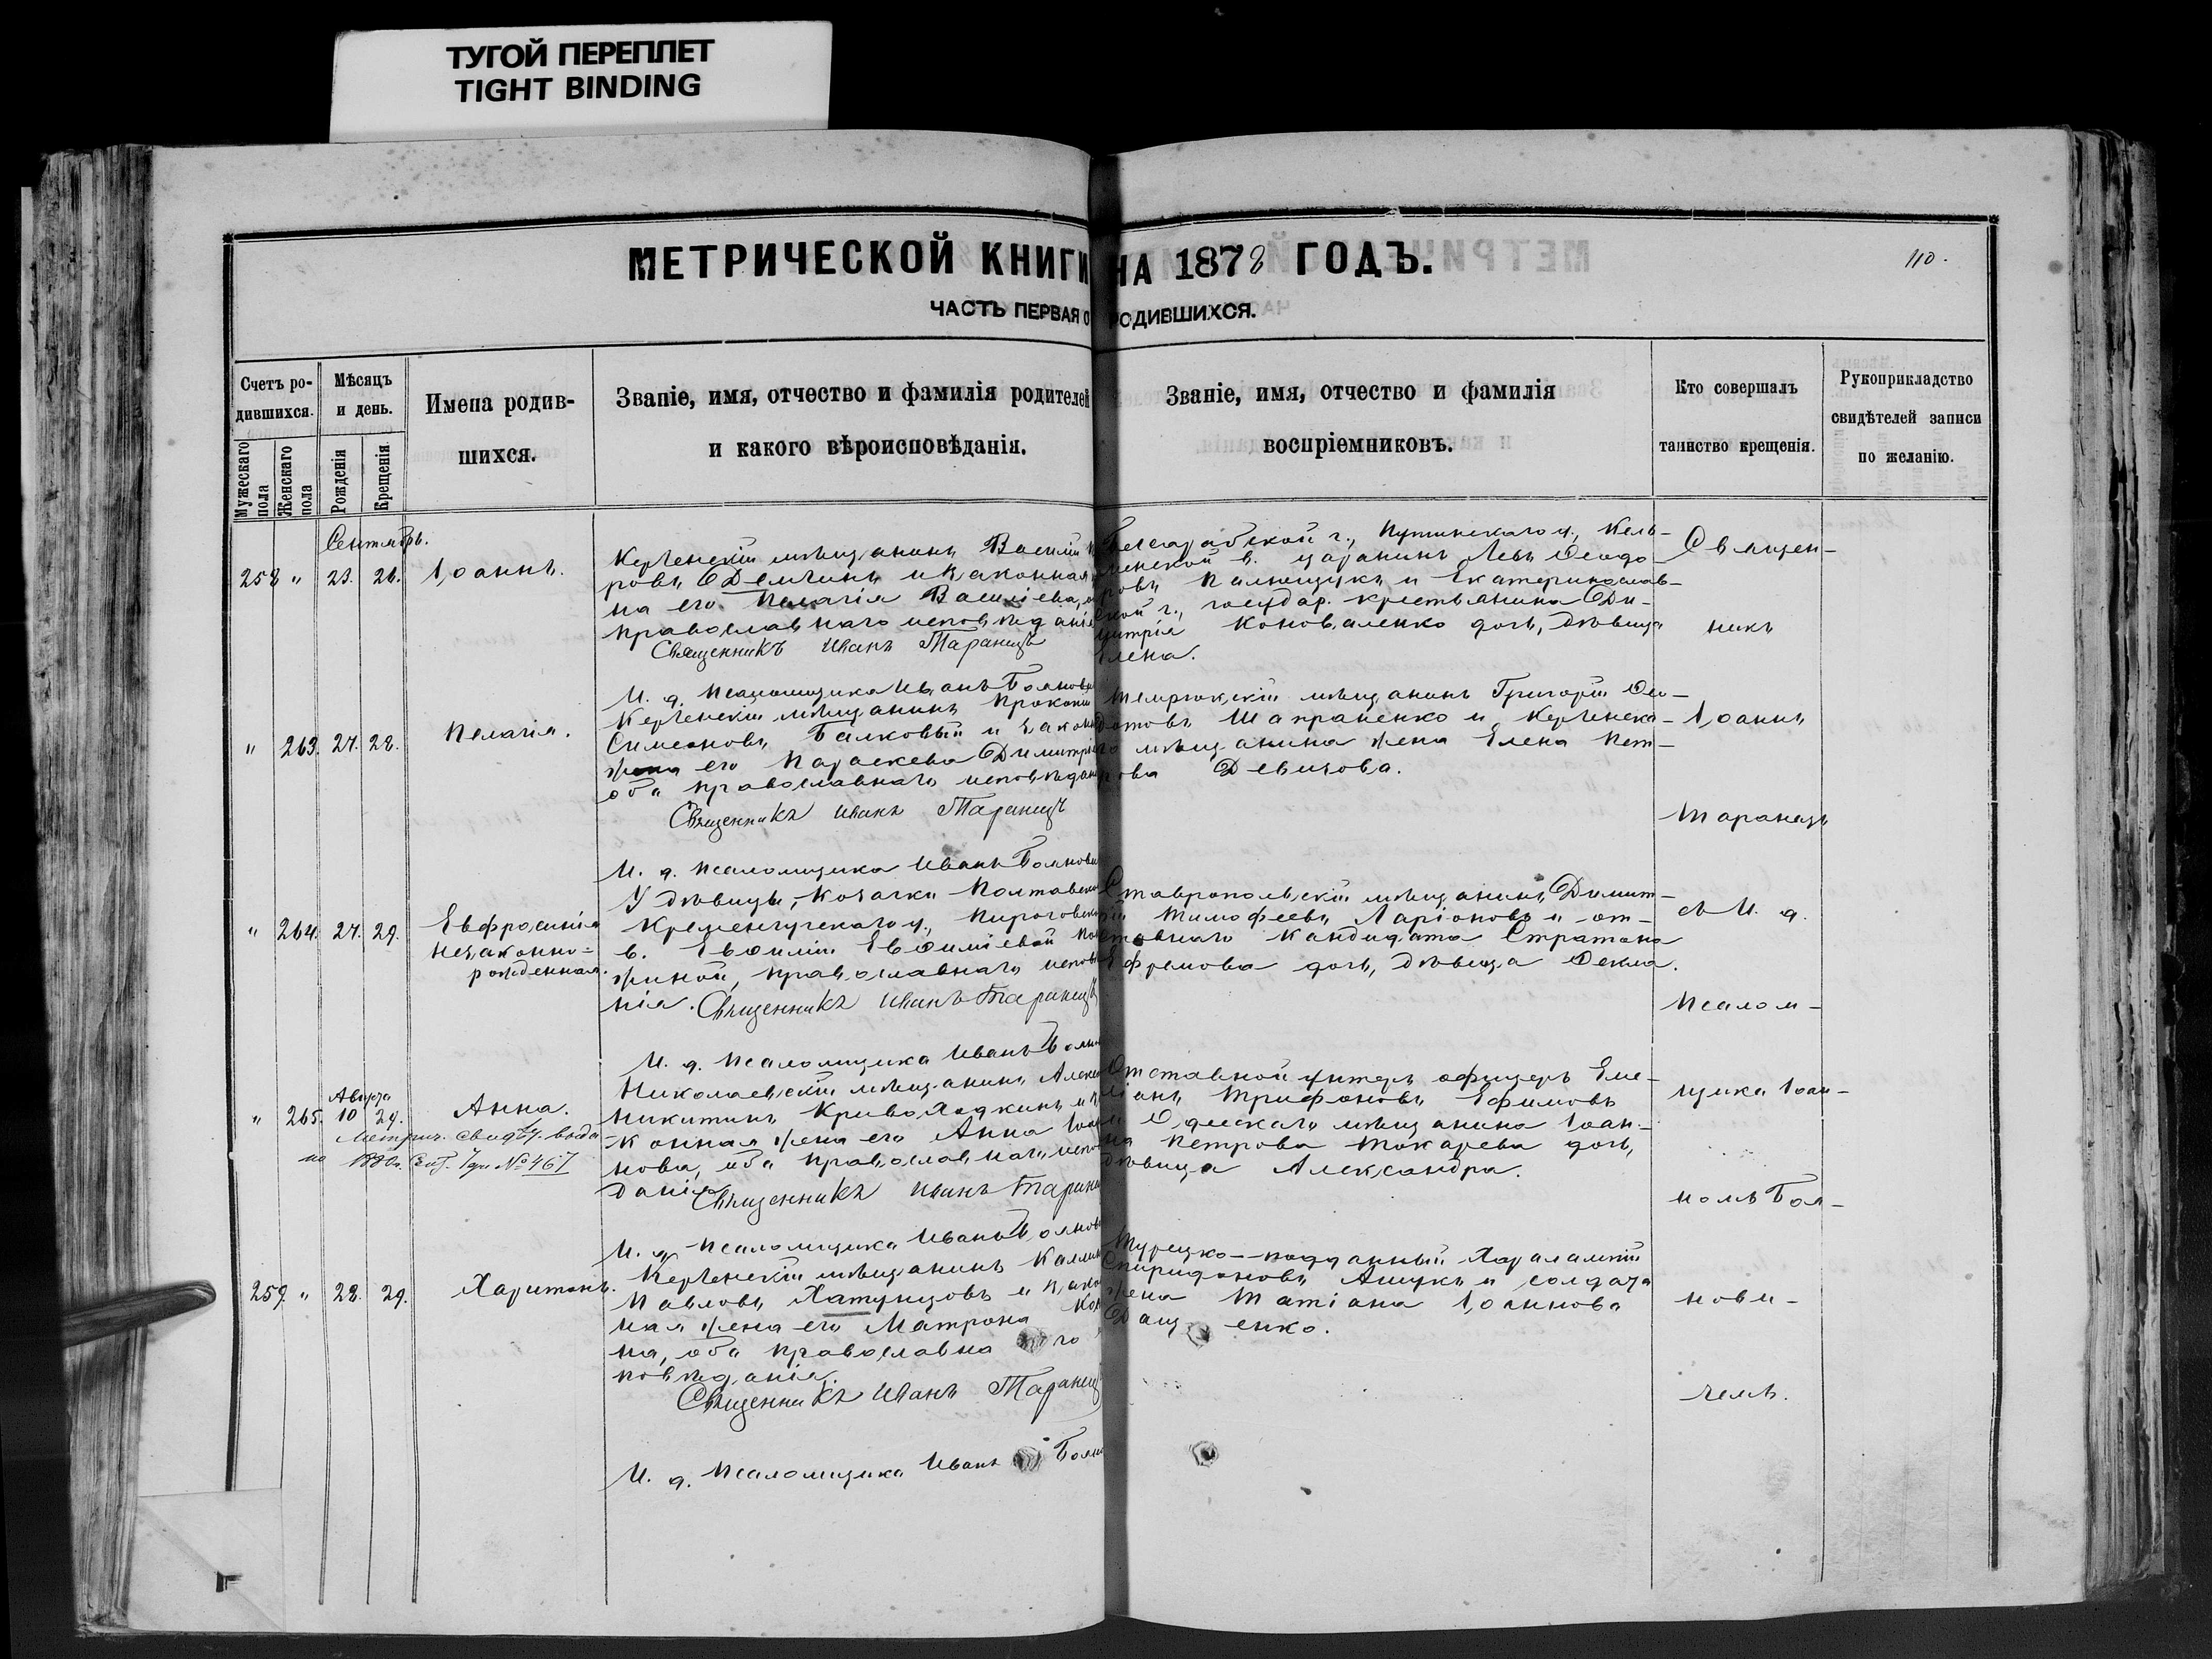 ТУГОЙ ПЕРЕПЛЕТ
TIGHT BINDING
МЕТРИЧЕСКОЙ КНИГИ НА 1878 ГОДЪ.
110.
ЧАСТЬ ПЕРВАЯ О РОДИВШИХСЯ.
Счетъ ро-
дившихся.
Мужескаго пола
Женскаго пола
Мѣсяцъ
и день.
Рожденія
Крещенія
Имена родив-
шихся.
Званіе, имя, отчество и фамилія родителей
и какого вѣроисповѣданія.
Званіе, имя, отчество и фамилія
воспріемниковъ.
Кто совершалъ
таинство крещенія.
Рукоприкладство
свидѣтелей записи
по желанію.
Сентябрь.
258 " 23. 26. Іоаннъ.
Керченскій мѣщанинъ Василій
ровъ Демчинъ и законная
на его Пелагія Василіева,
православнаго исповѣданія
Священникъ Иванъ Таранецъ
И. д. Псаломщика Иванъ Боянови
Бессарабской г.,
в. царанинъ Левъ Ѳеодо-
ровъ и Екатеринослав-
ской г., государ. крестьянина Ди-
митрія Коноваленко дочь, дѣвица
Елена.
" 263. 27. 28. Пелагія.
Керченскій мѣщанинъ Прокопій
Симеоновъ Балковый и законн
жена его Параскева Димитріе
оба православнаго исповѣдан
Священникъ Иванъ Таранецъ
И. д. Псаломщика Иванъ Боянови
Темрюкскій мѣщанинъ Григорій Ѳео-
дотовъ Шапраненко и Керченска-
го мѣщанина жена Елена Пет-
рова Девизова.
" 264. 27. 29. Евфросинія
незаконно-
рожденная.
У дѣвицы, козачки Полтавской
Кременчугскаго у., Пироговской
в. Евѳиміи Евѳиміевой
жиной, православнаго исповѣ
нія. Священникъ Иванъ Таранецъ
И. д. Псаломщика Иванъ Боян
Ставропольскій мѣщанинъ Димит-
рій Тимоѳеевъ Ларіоновъ и от-
ставнаго кандидата Стратона
Ефремова дочь, дѣвица Ѳекла.
" 265. Августа 10 29. Анна.
Метрич. свидѣт. выда
но 1880 г. Сент. 7 дня № 467
Николаевскій мѣщанинъ Алекс
Никитинъ Криволадкинъ и за
конная жена его Анна Іоан
нова, оба православнаго исповѣ
данія. Священникъ Иванъ Таранец
И. д. Псаломщика Иванъ Боянови
Отставной унтеръ офицеръ Еме-
ліанъ Трифоновъ Ефимовъ
и Одесскаго мѣщанина Іоан-
на Петрова Токарева дочь,
дѣвица Александра.
259. " 28. 29. Харитонъ.
Керченскій мѣщанинъ Каллин
Павловъ Хатунцовъ и зако
ная жена его Матрона
на, оба православнаго
повѣданія.
Священникъ Иванъ Таранецъ
И. д. Псаломщика Иванъ Боян
Турецко-подданный Харалампій
Спиридоновъ Ашукъ и солдата
жена Татіана Іоаннова
Даценко.
Священ-
никъ
Іоаннъ
Таранецъ
съ И. д.
Псалом-
щика Іоан-
номъ Боя-
нови-
чемъ.